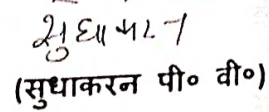 सुधाकरन
(सुधाकरन पी० वी०)